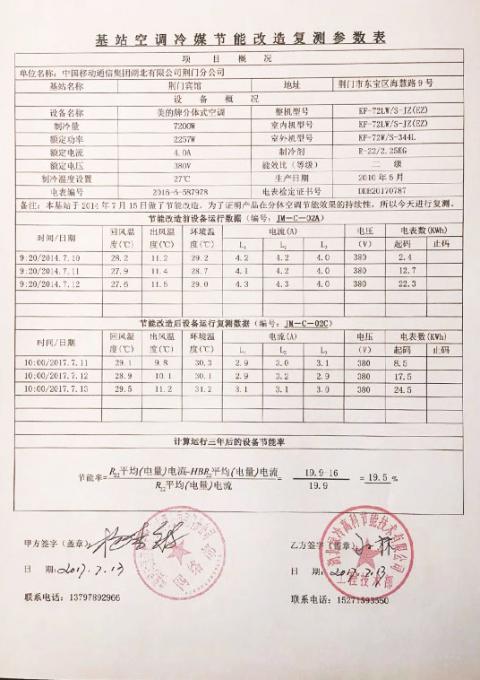 基站空调冷媒节能改造复测参数表
项 目 概 况
单位名称：中国移动通信集团湖北有限公司荆门分公司
基站名称 荆门宾馆 地址 荆门市东宝区海慧路9号
设 备 概 况
设备名称 美的牌分体式空调 整机型号 KF-72LW/S-JZ(EZ)
制冷量 7200W 室内机型号 KF-72LW/S-JZ(EZ)
额定功率 2257W 室外机型号 KF-72W/S-344L
额定电流 4.0A 制冷剂 R-22/2.25KG
额定电压 380V 能效比（等级） 二 级
制冷温度设置 27℃ 生产日期 2010年5月
电表编号 2016-6-587978 电表检定证书号 20170787
备注：本基站于2014年7月15日做了节能改造。为了证明产品在分体空调节能效果的持续性，所以今天进行复测。
节能改造前设备运行数据（编号：JM-C-02A）
时间/日期 回风温度(℃) 出风温度(℃) 环境温度(℃) 电流(A) 电压(V) 电表数(KWh)
L₁ L₂ L₃ 起码 止码
9:20/2014.7.10 28.2 11.2 29.2 4.2 4.2 4.0 380 2.4
9:20/2014.7.11 27.9 11.4 28.7 4.1 4.2 4.0 380 12.7
9:20/2014.7.12 27.6 11.5 29.0 4.3 4.3 4.0 380 22.3
节能改造后设备运行复测数据（编号：JM-C-02C）
时间/日期 回风温度(℃) 出风温度(℃) 环境温度(℃) 电流(A) 电压(V) 电表数(KWh)
L₁ L₂ L₃ 起码 止码
10:00/2017.7.11 29.1 9.8 30.3 2.9 3.0 3.1 380 8.5
10:00/2017.7.12 28.9 10.1 30.1 2.9 3.2 2.9 380 17.5
10:00/2017.7.13 29.5 11.2 31.2 3.1 3.1 3.0 380 24.5
计算运行三年后的设备节能率
节能率=R₂₂平均(电量)电流-HBR₂₂平均(电量)电流/R₂₂平均(电量)电流 = 19.9-16/19.9 = 19.5 %
甲方签字（盖章）： 乙方签字（盖章）：
网络部
工程技术部
日 期：2017.7.13 日 期：2017.7.13
联系电话：13797892966 联系电话：15271593550